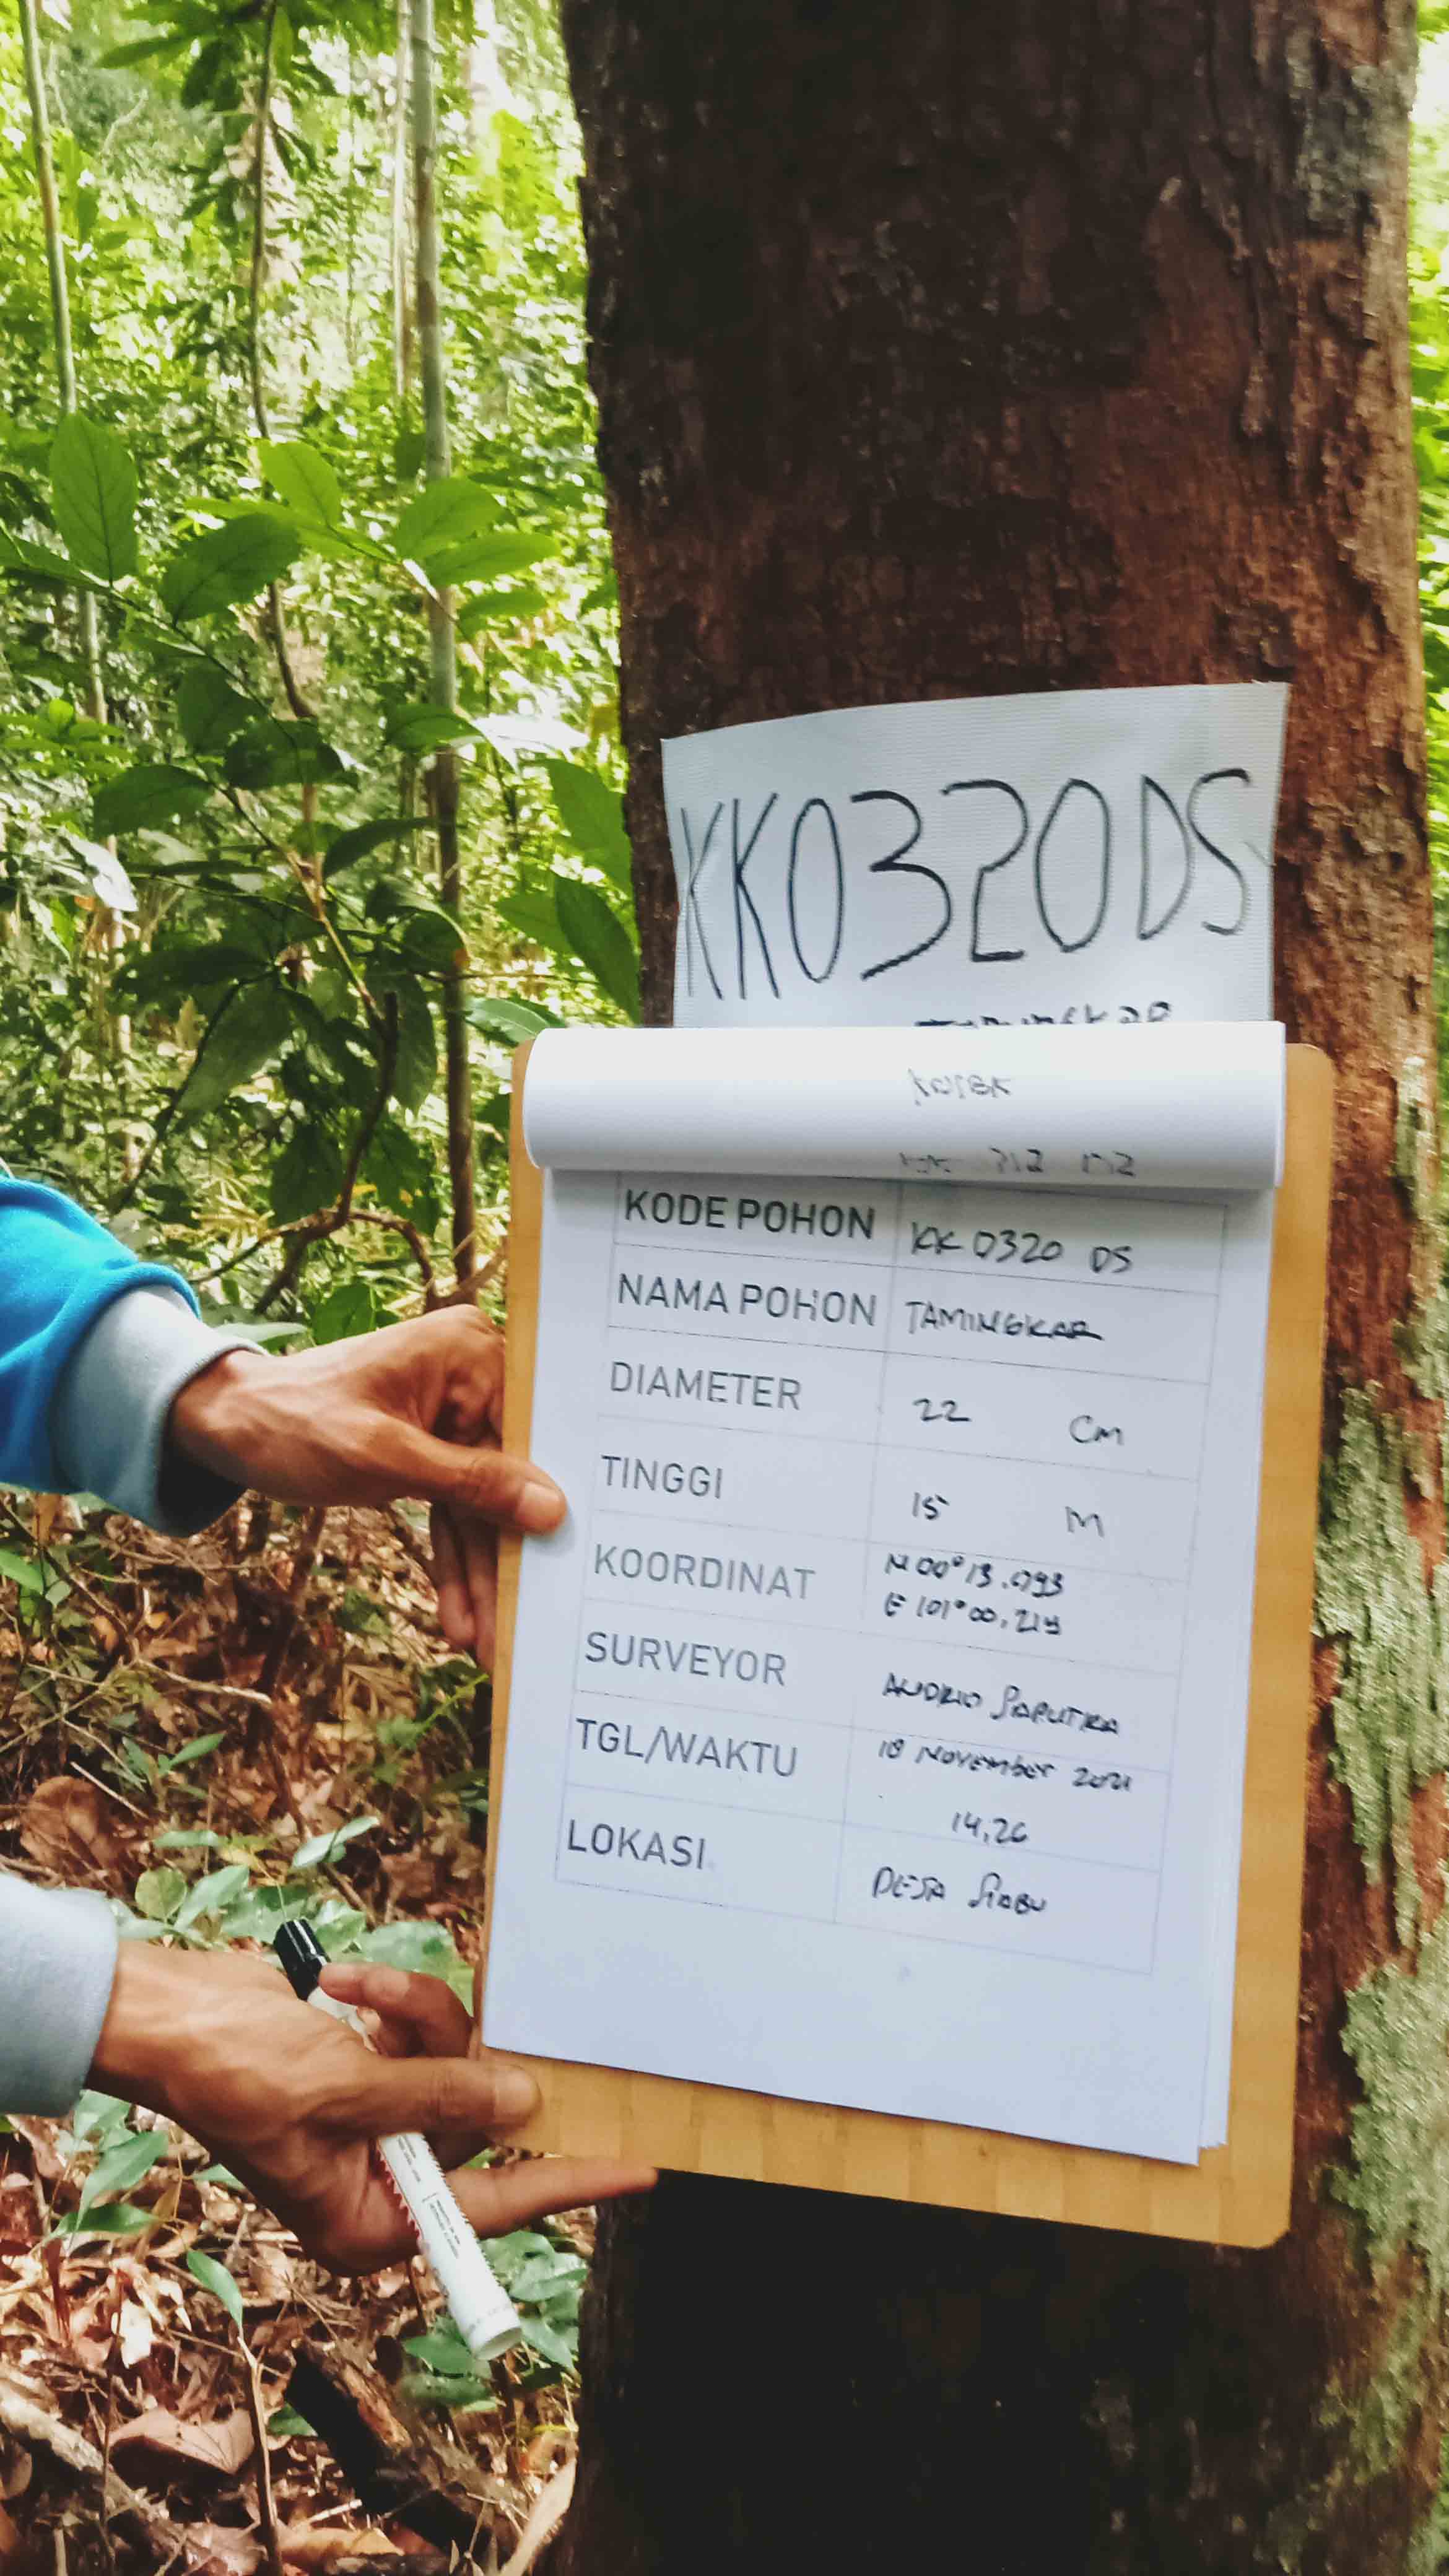 KK0320DS
KODE POHON KK 0320 DS
NAMA POHON TAMINGKAR
DIAMETER 22 Cm
TINGGI 15 M
KOORDINAT N 00° 13.093
E 101° 00,219
SURVEYOR ANDRIO SAPUTRA
TGL/WAKTU 18 November 2021
14,26
LOKASI DESA SIABU